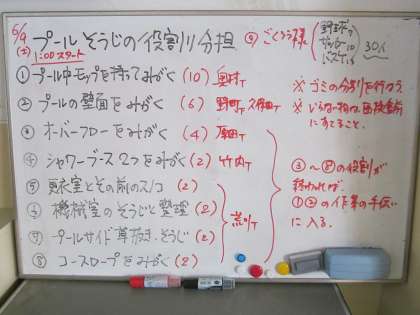 6/9
(土)
プールそうじの役割り分担
1:00スタート
⑨ごくろう様
野球部9
サッカー10
バスケ13
30人
①プール中モップを持ってみがく (10) 奥村T
②プールの壁面をみがく (6) 野町T 久保田T
③オーバーフローをみがく (4) 原田T
④シャワーブース2つをみがく (2) 竹内T
⑤更衣室とその前のスノコ (2)
⑥機械室のそうじと整理 (2)
⑦プールサイド草抜き、そうじ (2)
⑧コースロープをみがく (2)
荒川T
※ゴミの分別を行なう
※いらない物は
にすてること。
③〜⑧の役割が
終われば、
①②の作業の手伝い
に入る。